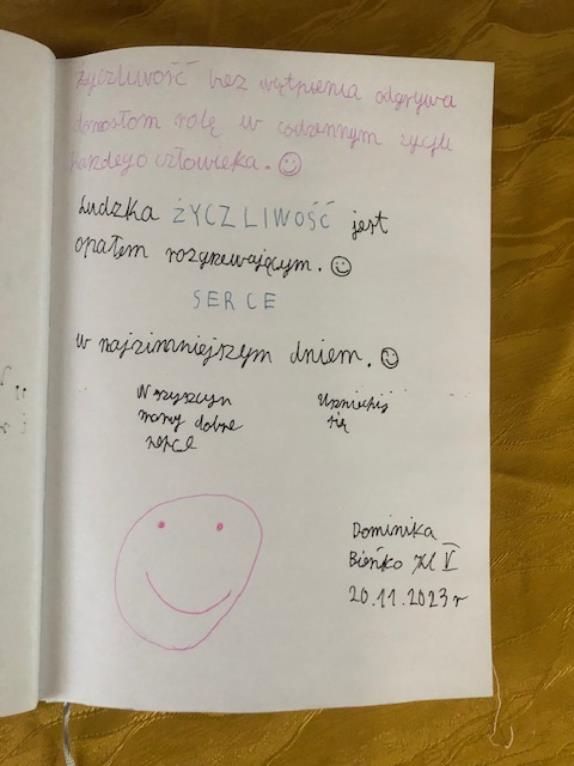 życzliwość bez wątpienia odgrywa
doniosłom rolę w codziennym życiu
każdego człowieka.
Ludzka ŻYCZLIWOŚĆ jest
opałem rozgrewającym.
SERCE
w najzimniejszym dniem.
Wszyscyn
mamy dobre
serce
Uśmiechij
się
Dominika
Bieńko kl V
20.11.2023 r